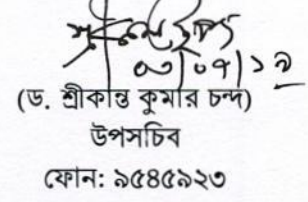 ০৩/০৭/১৯
(ড. শ্রীকান্ত কুমার চন্দ)
উপসচিব
ফোন: ৯৫৪৫৯২৩